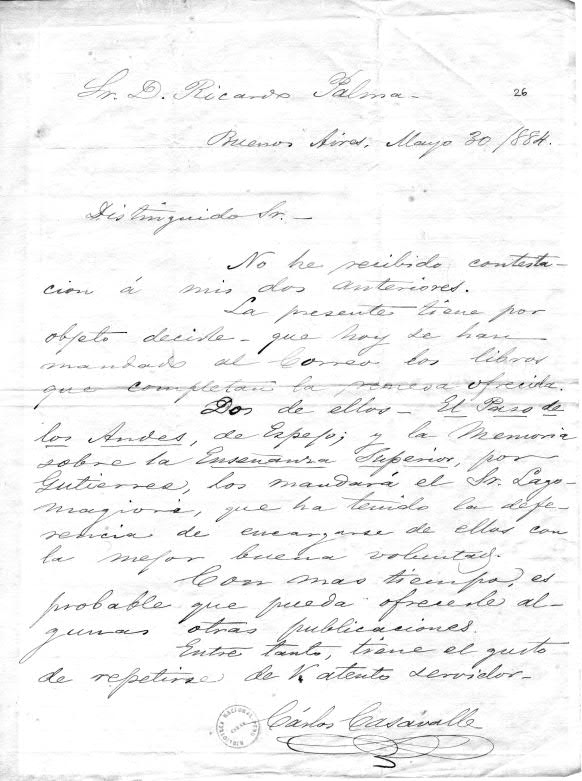 Sr. D. Ricardo Palma—
26
Buenos Aires, Mayo 30/884.
Distinguido Sr.—
No he recibido contesta-
cion á mis dos anteriores.
La presente tiene por
objeto decirle— que hoy se han
mandado al Correo los libros
que completan la remesa ofrecida.
Dos de ellos— El Paso de
los Andes, de Espejo; y la Memoria
sobre la Enseñanza Superior, por
Gutierres, los mandará el Sr. Lago-
magiore, que ha tenido la defe-
rencia de encargarse de ellos con
la mejor buena voluntad.
Con mas tiempo, es
probable que pueda ofrecerle al-
gunas otras publicaciones.
Entre tanto, tiene el gusto
de repetirse de V. atento servidor—
Cárlos Casavalle
BIBLIOTECA NACIONAL